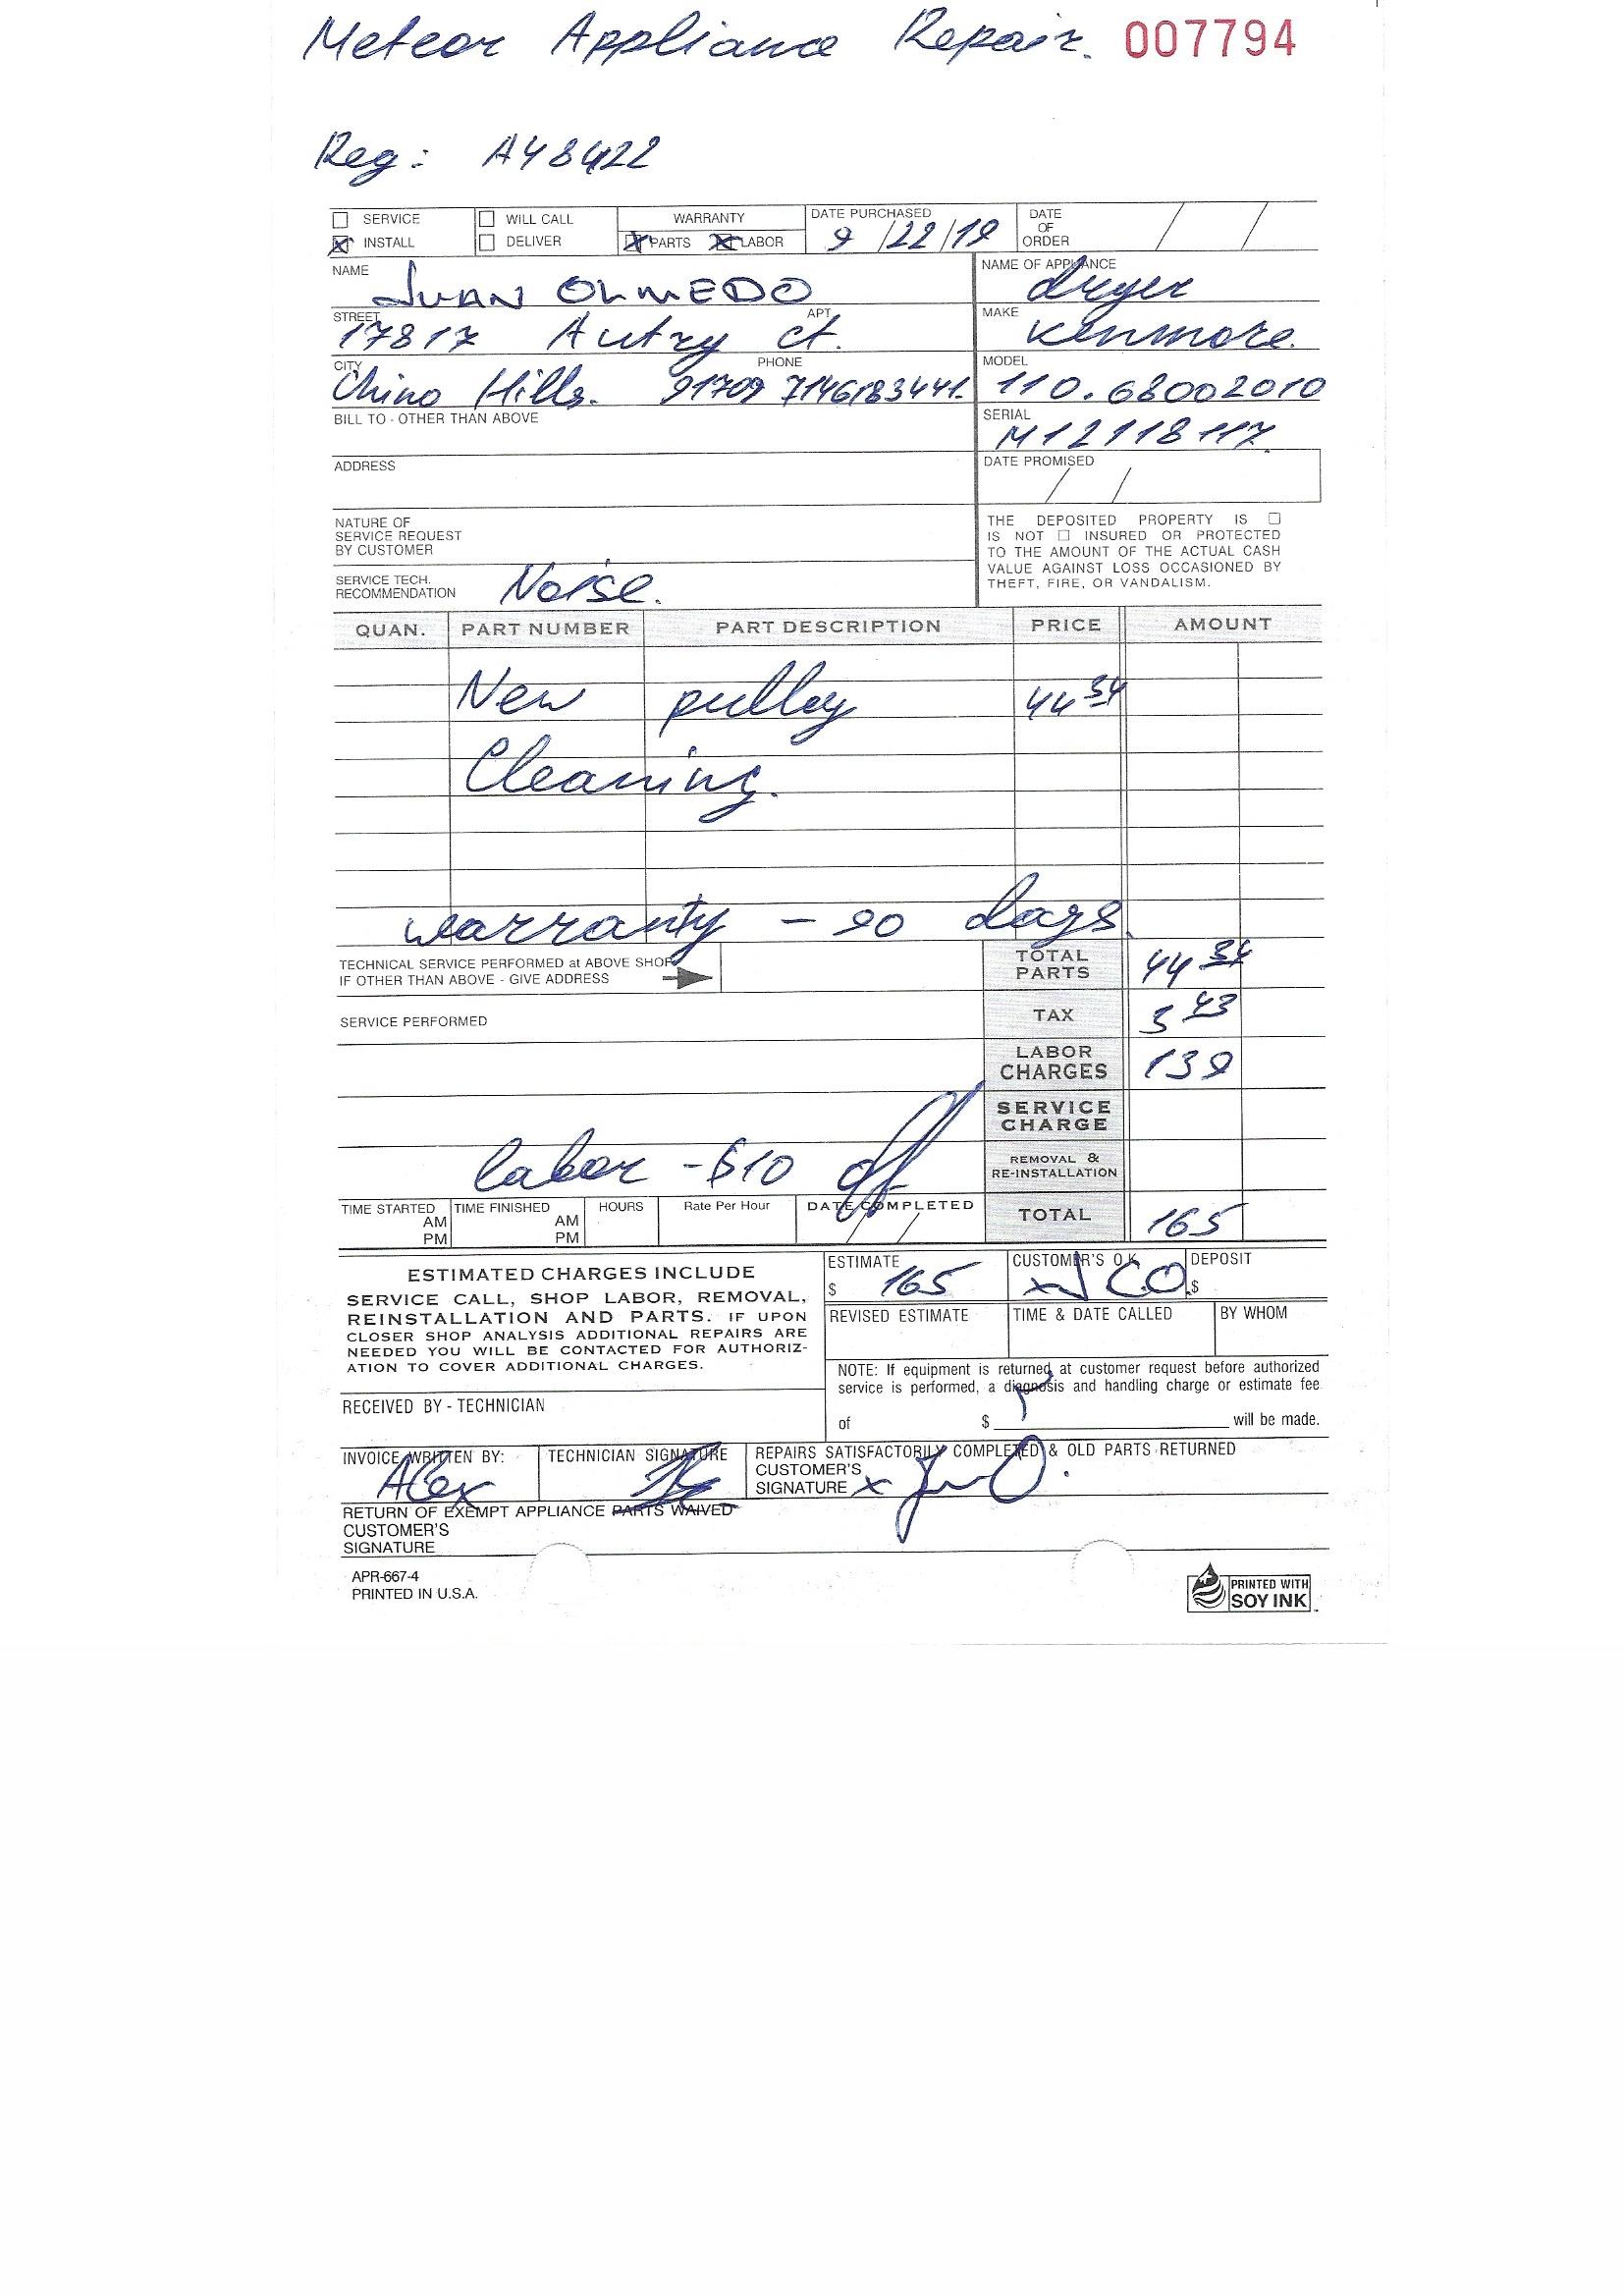 Meteor Appliance Repair. 007794
Reg: A48422
SERVICE WILL CALL WARRANTY DATE PURCHASED DATE OF ORDER
INSTALL DELIVER PARTS LABOR 9/22/19
NAME JUAN OLMEDO NAME OF APPLIANCE dryer
STREET 17817 Autry ct. APT. MAKE Kenmore.
CITY Chino Hills. 91709 PHONE 7146183441. MODEL 110.68002010
BILL TO - OTHER THAN ABOVE SERIAL M12118117
ADDRESS DATE PROMISED
NATURE OF
SERVICE REQUEST
BY CUSTOMER
THE DEPOSITED PROPERTY IS
IS NOT INSURED OR PROTECTED
TO THE AMOUNT OF THE ACTUAL CASH
VALUE AGAINST LOSS OCCASIONED BY
THEFT, FIRE, OR VANDALISM.
SERVICE TECH.
RECOMMENDATION Noise.
QUAN. PART NUMBER PART DESCRIPTION PRICE AMOUNT
New pulley 44 34
Cleaning.
warranty - 90 days.
TECHNICAL SERVICE PERFORMED at ABOVE SHOP
IF OTHER THAN ABOVE - GIVE ADDRESS
TOTAL PARTS 44 34
SERVICE PERFORMED TAX 3 43
LABOR CHARGES 139
SERVICE CHARGE
labor - $10 off REMOVAL & RE-INSTALLATION
TIME STARTED AM PM TIME FINISHED AM PM HOURS Rate Per Hour DATE COMPLETED TOTAL 165
ESTIMATED CHARGES INCLUDE
SERVICE CALL, SHOP LABOR, REMOVAL,
REINSTALLATION AND PARTS. IF UPON
CLOSER SHOP ANALYSIS ADDITIONAL REPAIRS ARE
NEEDED YOU WILL BE CONTACTED FOR AUTHORIZ-
ATION TO COVER ADDITIONAL CHARGES.
ESTIMATE $ 165 CUSTOMER'S O.K. x JCO DEPOSIT $
REVISED ESTIMATE TIME & DATE CALLED BY WHOM
NOTE: If equipment is returned at customer request before authorized
service is performed, a diagnosis and handling charge or estimate fee
of $ will be made.
RECEIVED BY - TECHNICIAN
INVOICE WRITTEN BY: Alex TECHNICIAN SIGNATURE REPAIRS SATISFACTORILY COMPLETED & OLD PARTS RETURNED
CUSTOMER'S
SIGNATURE x
RETURN OF EXEMPT APPLIANCE PARTS WAIVED
CUSTOMER'S
SIGNATURE
APR-667-4
PRINTED IN U.S.A.
PRINTED WITH
SOY INK